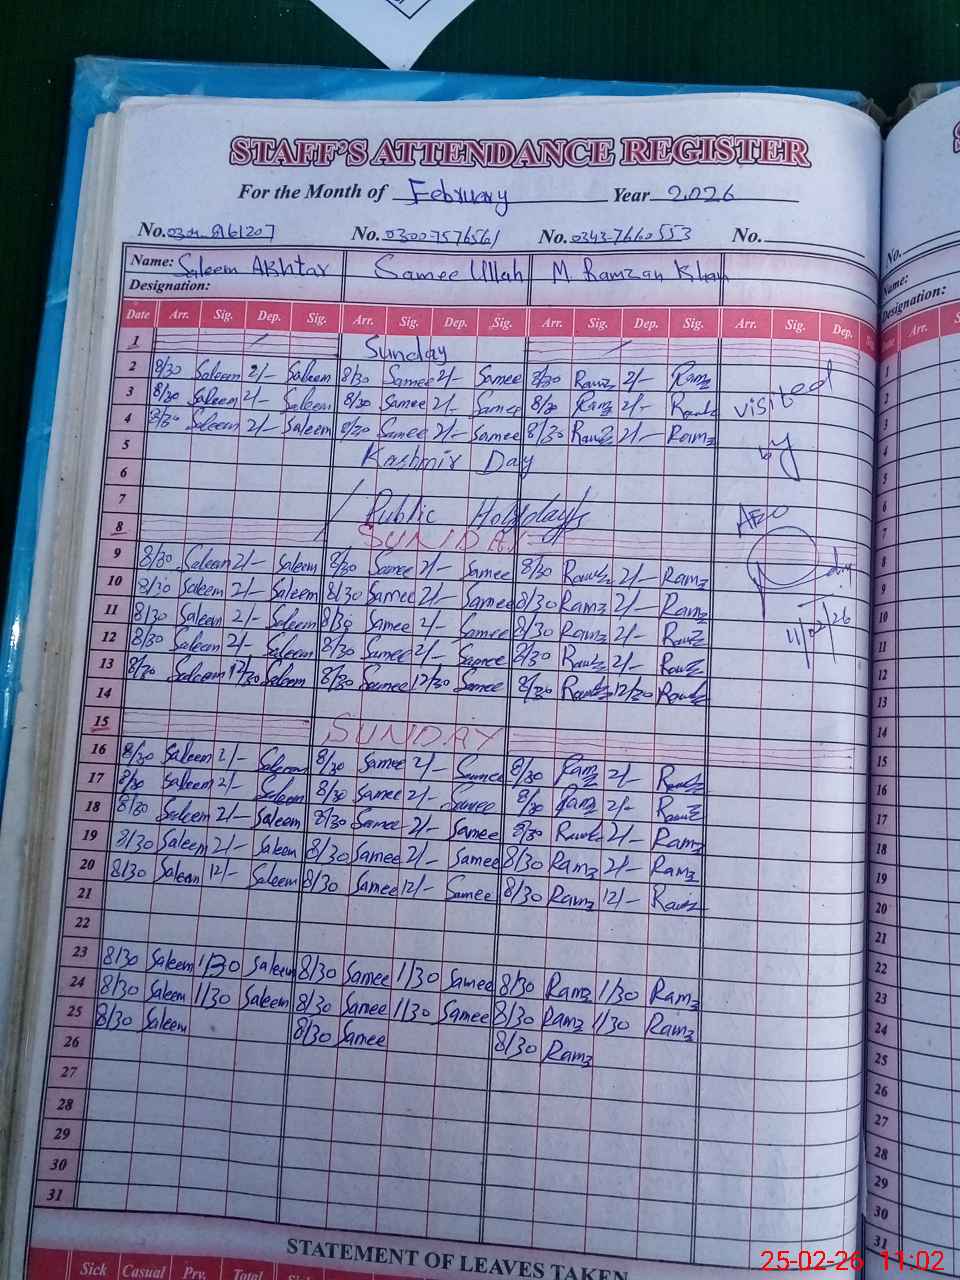 STAFF'S ATTENDANCE REGISTER
For the Month of February Year 2026
No. No. 03007576561 No. 0343-7660553 No.
Name: Saleem Akhtar Samee Ullah M. Ramzan Khan
Designation:
Date Arr. Sig. Dep. Sig. Arr. Sig. Dep. Sig. Arr. Sig. Dep. Sig. Arr. Sig. Dep.
1 Sunday
2 8/30 Saleem 2/- Saleem 8/30 Samee 2/- Samee 8/30 Ramz 2/- Ramz
3 8/30 Saleem 2/- Saleem 8/30 Samee 2/- Samee 8/30 Ramz 2/- Ramz visited
4 8/30 Saleem 2/- Saleem 8/30 Samee 2/- Samee 8/30 Ramz 2/- Ramz by
5 Kashmir Day
6
7 Public Holydays AEO
8 SUNDAY
9 8/30 Saleem 2/- Saleem 8/30 Samee 2/- Samee 8/30 Ramz 2/- Ramz
10 8/30 Saleem 2/- Saleem 8/30 Samee 2/- Samee 8/30 Ramz 2/- Ramz
11 8/30 Saleem 2/- Saleem 8/30 Samee 2/- Samee 8/30 Ramz 2/- Ramz 11/02/26
12 8/30 Saleem 2/- Saleem 8/30 Samee 2/- Samee 8/30 Ramz 2/- Ramz
13 8/30 Saleem 12/30 Saleem 8/30 Samee 12/30 Samee 8/30 Ramz 12/30 Ramz
14
15 SUNDAY
16 8/30 Saleem 2/- Saleem 8/30 Samee 2/- Samee 8/30 Ramz 2/- Ramz
17 8/30 Saleem 2/- Saleem 8/30 Samee 2/- Samee 8/30 Ramz 2/- Ramz
18 8/30 Saleem 2/- Saleem 8/30 Samee 2/- Samee 8/30 Ramz 2/- Ramz
19 8/30 Saleem 2/- Saleem 8/30 Samee 2/- Samee 8/30 Ramz 2/- Ramz
20 8/30 Saleem 12/- Saleem 8/30 Samee 12/- Samee 8/30 Ramz 12/- Ramz
21
22
23 8/30 Saleem 1/30 Saleem 8/30 Samee 1/30 Samee 8/30 Ramz 1/30 Ramz
24 8/30 Saleem 1/30 Saleem 8/30 Samee 1/30 Samee 8/30 Ramz 1/30 Ramz
25 8/30 Saleem 8/30 Samee 8/30 Ramz
26
27
28
29
30
31
STATEMENT OF LEAVES TAKEN
Sick Casual Prv. Total
No.
Name:
Designation:
Arr.
1
2
3
4
5
6
7
8
9
10
11
12
13
14
15
16
17
18
19
20
21
22
23
24
25
26
27
28
29
30
31
25-02-26 11:02